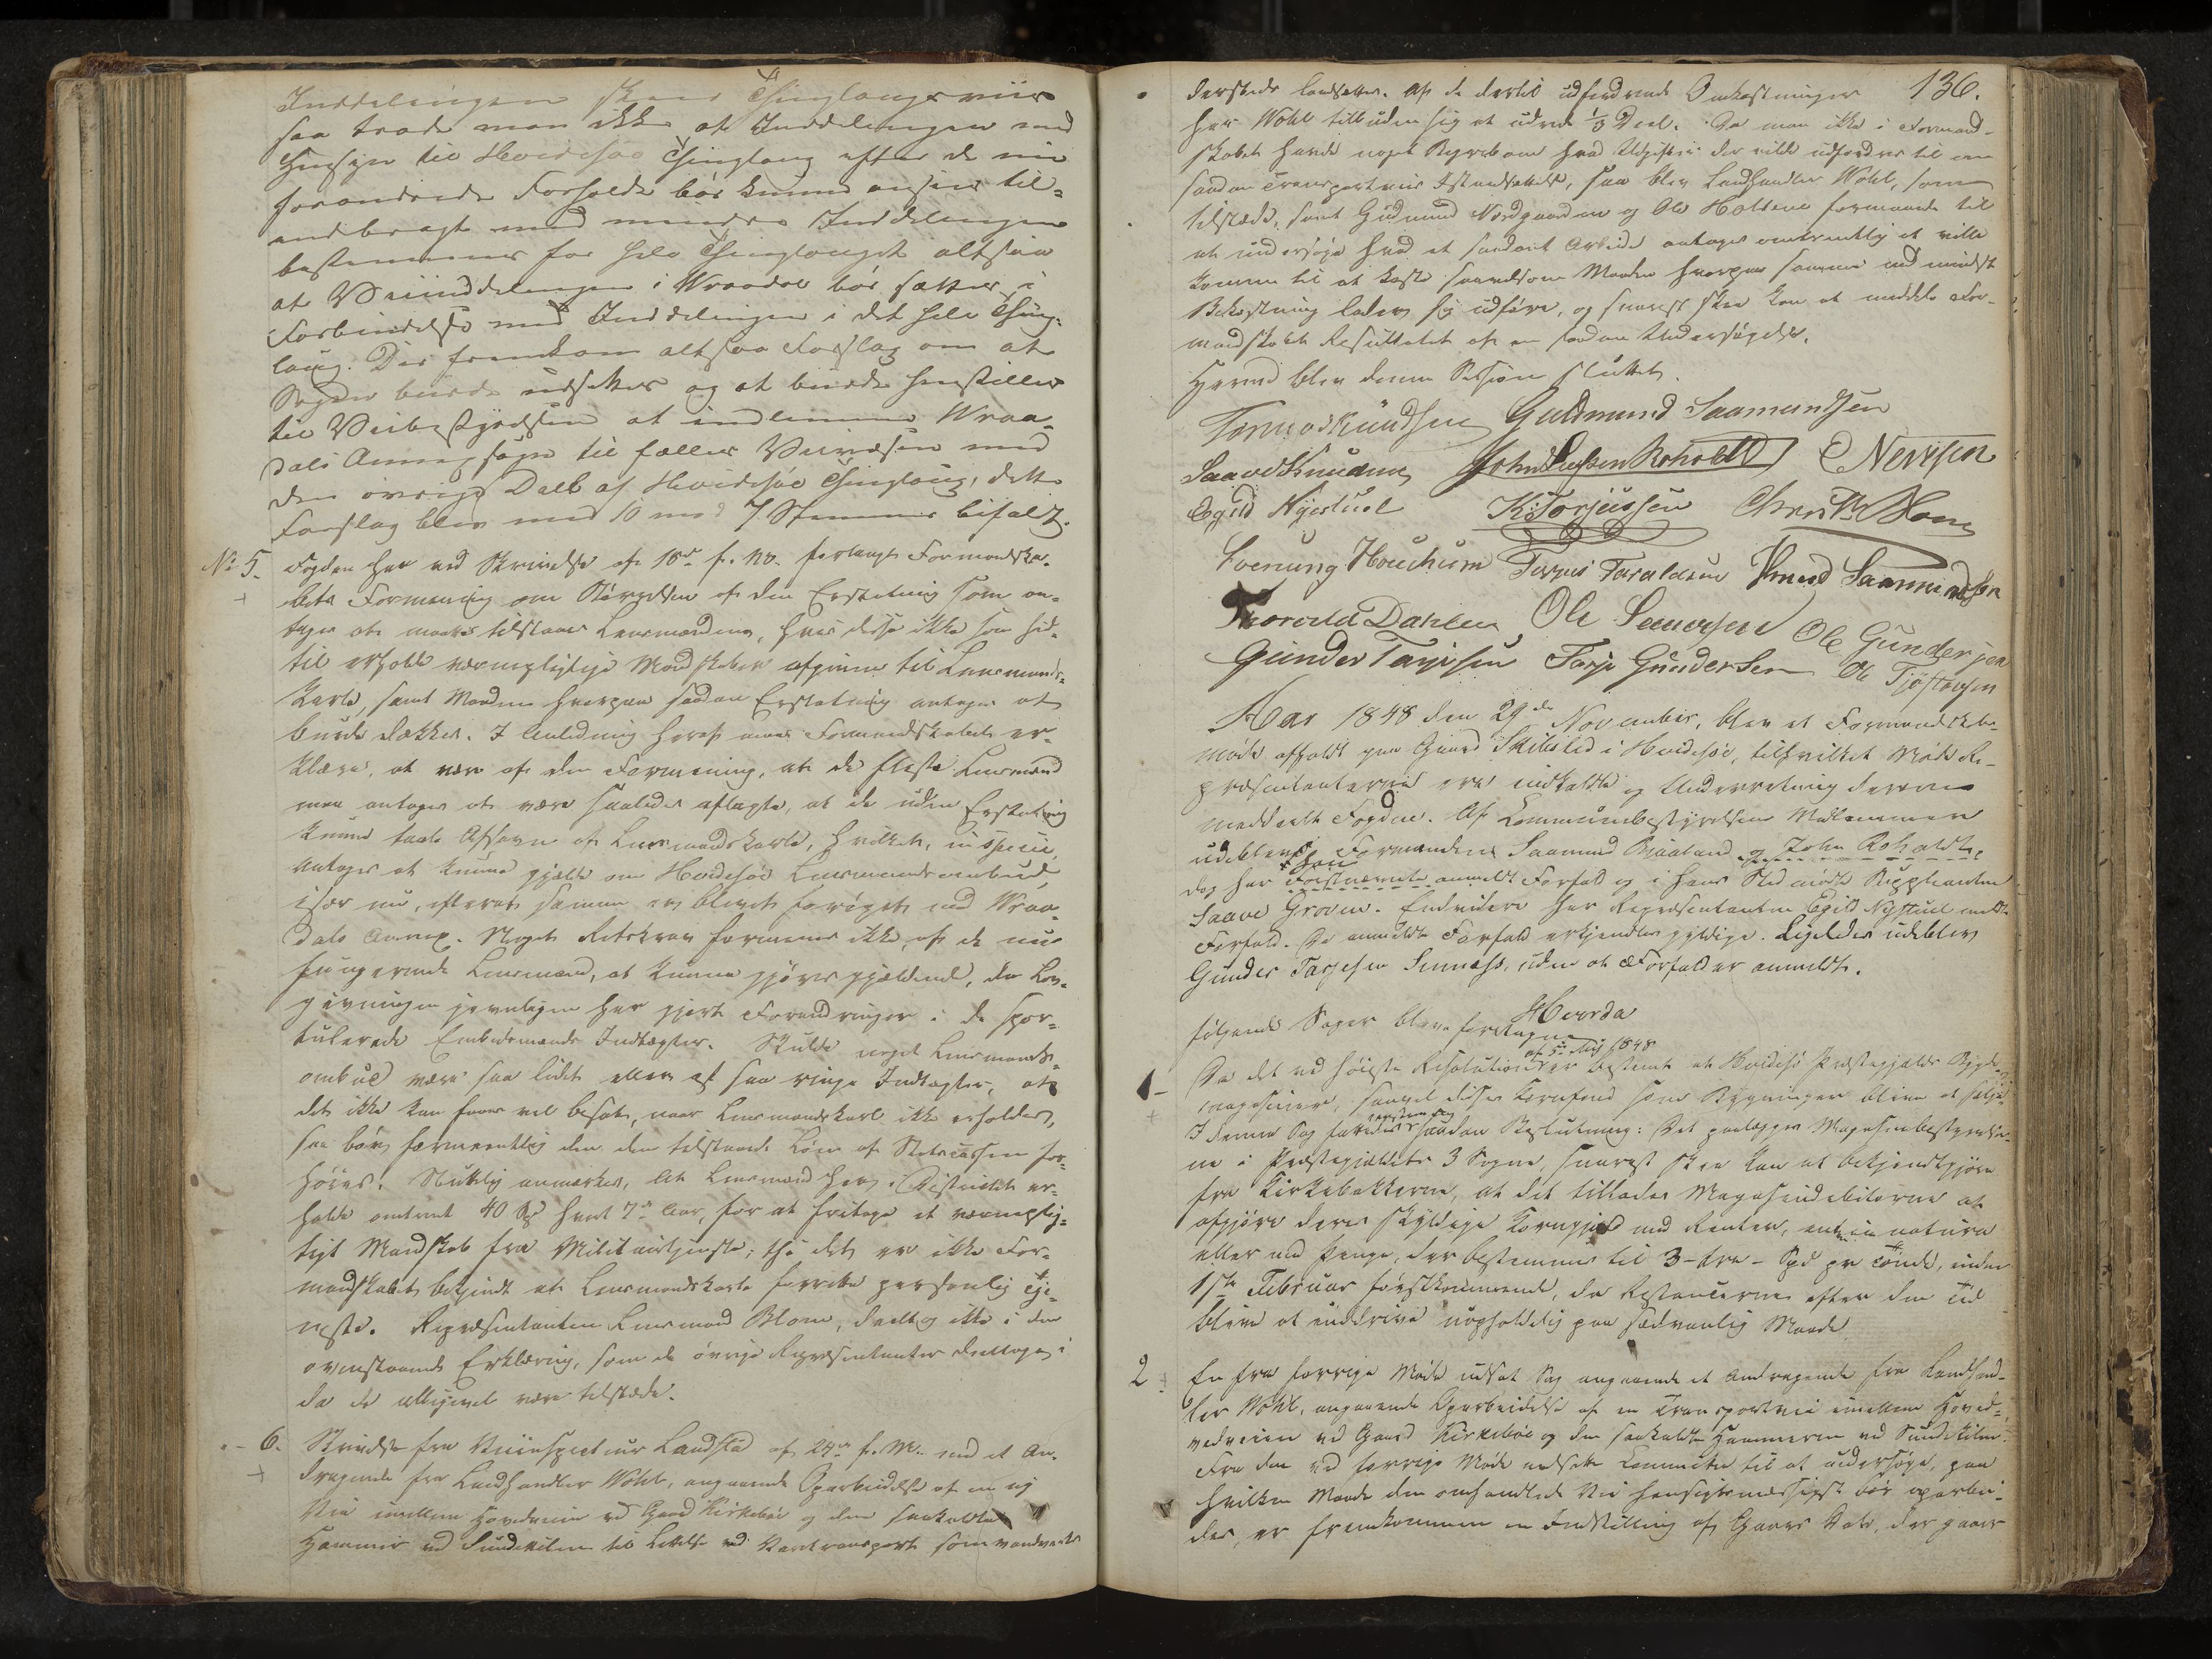 Inddelingen skeer Thinglaugsviis
saa troede man ikke at Inddelingen med
Hensyn til Hvidesøe Thinglaug efter de nu
forandrede Forholde bør kunne ansees til-
endebragt med mindre Inddelingen
bestemmes for hele Thinglauget altsaa
at Veiinddelingen i Wraadal bør sættes i
Forbindelse med Inddelingen i det hele Thing-
laug. Der fremkom altsaa Forslag om at
Sagen burde udsættes og at burde henstilles
til Veibestyrelsen at indlemme Wraa-
dals Annexsogn til fælles Veivæsen med
den øvrige Deel af Hvidesøe Thinglaug, dette
Forslag blev med 10 mod 7 Stemmer bifaldt.
No 5. Fogden har ved Skrivelse af 18de f. M. forlangt Formandska-
bets Formening om Størrelsen af den Erstatning som an-
tages at maatte tilstaaes Lensmændene, hvis disse ikke som hid-
til erholde værnepligtige Mandskaber afgivne til Lensmands-
karle, samt Maaden hvorpaa saadan Erstatning antages at
burde dækkes. I Anledning heraf maa Formandskabet er-
klære, at være af den Formening, at de fleste Lensmænd
maa antages at være saaledes aflagte, at de uden Erstatning
kunne taale Afsavn af Lensmandskarle, hvilket, in specie,
antages at kunne gjælde om Hvidesøe Lensmandsombud,
især nu, efterat samme er blevet forøget med Wraa-
dals Annex. Noget Retskrav formenes ikke, af de nu
fungerende Lensmænd, at kunne gjøres gjældende, da Lov-
givningen jevnligen har gjort Forandringer i de spor-
tulerede Embedsmænds Indtægter. Skulde noget Lensmands-
ombud være saa lidet eller af saa ringe Indtægter, at
det ikke kan faaes vel besat, naar Lensmandskarl ikke erholdes,
saa bør formeentlig den dem tilstaaede Løn af Statscassen for-
høies. Sluttelig anmærkes, at Lensmænd her i Districtet er-
holde omtrent 40 Spd hvert 7de Aar, for at fritage et værneplig-
tigt Mandskab fra Militairtjeneste; thi det er ikke For-
mandskabet bekjendt at Lensmandskarle forrette personlig Tje-
neste. Repræsentanten Lensmand Blom, deeltog ikke i den
ovenstaaende Erklæring, som de øvrige Repræsentanter deeltoge i
da de alligevel vare tilstæde.
6. Skrivelse fra Veiinspecteur Landstad af 24de f. M. med et An-
dragende fra Landhandler Wohl, angaaende Oparbeidelse af en ny
Vei imellem Hovedveien ved Gaard Kirkebøe og den saakaldte
Hammer ved Sundkilen til Lettelse ved Varetransport som vandværts
136.
dersteds landsættes. Af de dertil udfordrende Omkostninger
har Wohl tilbuden sig at udrede 1/3 Deel. Da man ikke i Formand-
skabet havde noget Begreb om hvad Udgifter der vilde udfordres til en
saadan Transportveis Istandsættelse, saa blev Landhandler Wohl, som
tilstæde, samt Gudmund Nordgaarden og Ole Holtene formaaede til
at undersøge hvad et saadant Arbeide antages omtrentlig at ville
komme til at koste saavelsom Maaden hvorpaa samme med mindst
Bekostning lader sig udføre, og snarest skee kan at meddele For-
mandskabet Resultatet af en saadan Undersøgelse.
Hermed blev denne Session sluttet.
Tormod Knudsen Guldmund Saamundsen
Saave Knudsen John Lassen Roholdt C Nevisen
Egild Nystuel K: Torjussen Christ Blom
Svenung Houchum Tarjei Taraldsen Knud Saamundsøn
Thorvild Dahlen Ole Simonsen Ole Gundersen
Gunder Tarjesen Tarje Gundersen Ole Tjøstovsen
Aar 1848 den 29de November, blev et Formandskabs-
møde afholdt paa Gaard Skibsled i Hvidesøe, tilhvilket Møde Re-
præsentanterne ere indkaldte og Underretning derom
meddeelt Fogden. Af Communebestyrelsens Medlemmer
udeblev Formanden Saamund Bjaaland og John Roholdt,
dog har han Førstnævnte anmeldt Forfald og i hans Sted mødte Suppleanten
Saave Groven. Endvidere har Repræsentanten Egild Nystuel meldt
Forfald. De anmeldte Forfald erkjendtes gyldige. Ligeledes udeblev
Gunder Tarjesen Sinnæss, uden at Forfald er anmeldt.
Hvorda
følgende Sager bleve foretagne
1- Da det ved høieste Resolution af 5te Mai 1848 er bestemt at Hvidesø Præstegjælds Bygde-
magasiner, saavel disses Kornfond som Bygninger blive at sælge.
I denne Sag fattedes eenstemmig saadan Beslutning: Det paalægges Magasinbestyrelser-
ne i Præstegjeldets 3 Sogne, snarest skee kan at bekjendtgjøre
fra Kirkebakkerne, at det tillades Magasindebitorerne at
afgjøre deres skyldige Korngjeld med Renter, enten in natura
eller med Penge, der bestemmes til 3- tre - Spd pr Tønde, inden
1ste Februar førstkommende, da Restancerne efter den Tid
blive at inddrive uopholdelig paa sædvanlig Maade.
2 En fra forrige Møde udsat Sag angaaende et Andragende fra Landhand-
ler Wohl, angaaende Oparbeidelse af en Transportvei imellem Hoved-
veien ved Gaard Kirkebøe og den saakaldte Hammeren ved Sundkilen.
Fra den ved forrige Møde nedsatte Committee til at undersøge, paa
hvilken Maade den omhandlede Vei hensigtsmæssigst bør oparbei-
des, er fremkommen en Indstilling af Gaars Dato, der gaaer